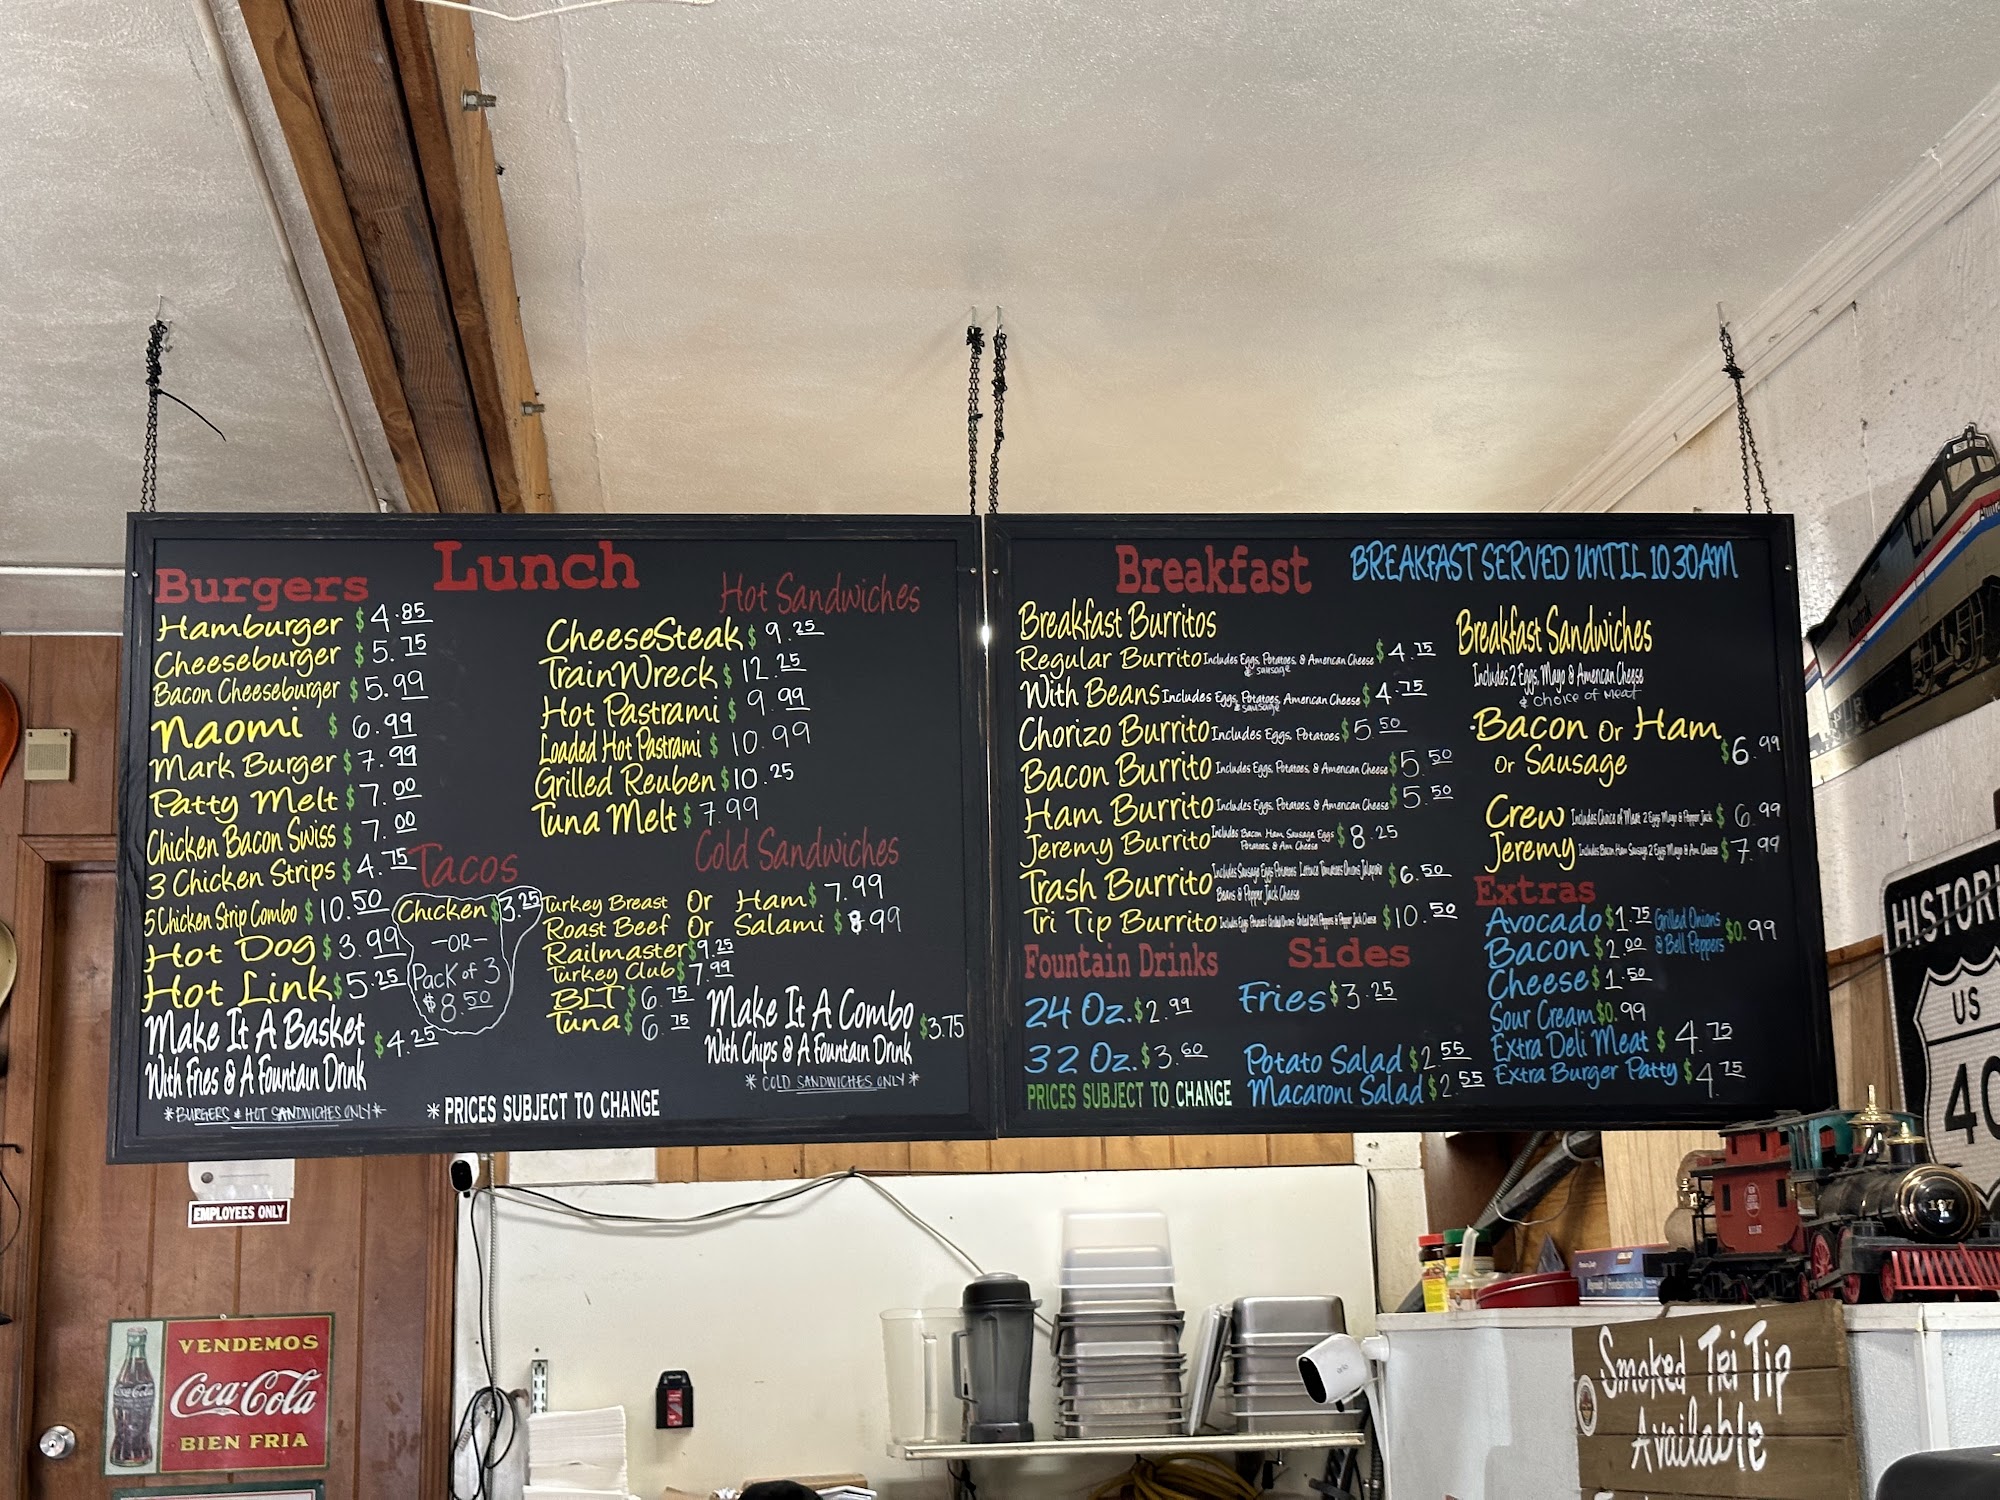 Lunch
Burgers
Hamburger $4.85
Cheeseburger $5.75
Bacon Cheeseburger $5.99
Naomi $6.99
Mark Burger $7.99
Patty Melt $7.00
Chicken Bacon Swiss $7.00
3 Chicken Strips $4.75
5 Chicken Strip Combo $10.50
Hot Dog $3.99
Hot Link $5.25
Make It A Basket
With Fries & A Fountain Drink $4.25
*BURGERS & HOT SANDWICHES ONLY*
Tacos
Chicken $3.25
-OR-
Pack of 3
$8.50
Hot Sandwiches
CheeseSteak $9.25
TrainWreck $12.25
Hot Pastrami $9.99
Loaded Hot Pastrami $10.99
Grilled Reuben $10.25
Tuna Melt $7.99
Cold Sandwiches
Turkey Breast Or Ham $7.99
Roast Beef Or Salami $8.99
Railmaster $9.25
Turkey Club $7.99
BLT $6.75
Tuna $6.75
Make It A Combo
With Chips & A Fountain Drink $3.75
*COLD SANDWICHES ONLY*
*PRICES SUBJECT TO CHANGE
Breakfast
BREAKFAST SERVED UNTIL 10 30AM
Breakfast Burritos
Regular Burrito Includes Eggs, Potatoes, & American Cheese $4.75
& sausage
With Beans Includes Eggs, Potatoes, American Cheese $4.75
& sausage
Chorizo Burrito Includes Eggs, Potatoes $5.50
Bacon Burrito Includes Eggs, Potatoes, & American Cheese $5.50
Ham Burrito Includes Eggs, Potatoes, & American Cheese $5.50
Jeremy Burrito Includes Bacon Ham Sausage Eggs $8.25
Potatoes, & Am Cheese
Trash Burrito Includes Sausage Eggs Potatoes Lettuce Tomatoes Onions Jalapeño $6.50
Beans & Pepper Jack Cheese
Tri Tip Burrito Includes Eggs Potatoes Grilled Onions Grilled Bell Peppers & Pepper Jack Cheese $10.50
Fountain Drinks
24 Oz. $2.99
32 Oz. $3.60
PRICES SUBJECT TO CHANGE
Sides
Fries $3.25
Potato Salad $2.55
Macaroni Salad $2.55
Breakfast Sandwiches
Includes 2 Eggs, Mayo & American Cheese
& Choice of Meat
-Bacon Or Ham
Or Sausage $6.99
Crew Includes Choice of Meat 2 Eggs Mayo & Pepper Jack $6.99
Jeremy Includes Bacon Ham Sausage 2 Eggs Mayo & Am Cheese $7.99
Extras
Avocado $1.75
Bacon $2.00
Cheese $1.50
Sour Cream $0.99
Extra Deli Meat $4.75
Extra Burger Patty $4.75
Grilled Onions
& Bell Peppers $0.99
EMPLOYEES ONLY
VENDEMOS
Coca-Cola
BIEN FRIA
Smoked Tri Tip
Available
HISTORI
US
40
197
arlo